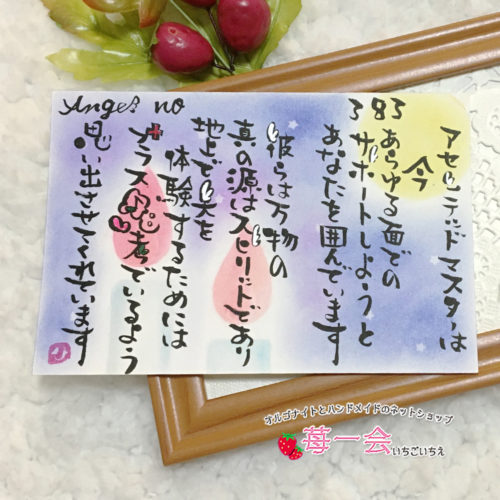 Angel no
383
アセンデッドマスターは
今
あらゆる面での
サポートしようと
あなたを囲んでいます
彼らは万物の
真の源はスピリットであり
地上で美を
体験するためには
プラス思考でいるよう
思い出させてくれています
オルゴナイトとハンドメイドのネットショップ
苺一会いちごいちえ